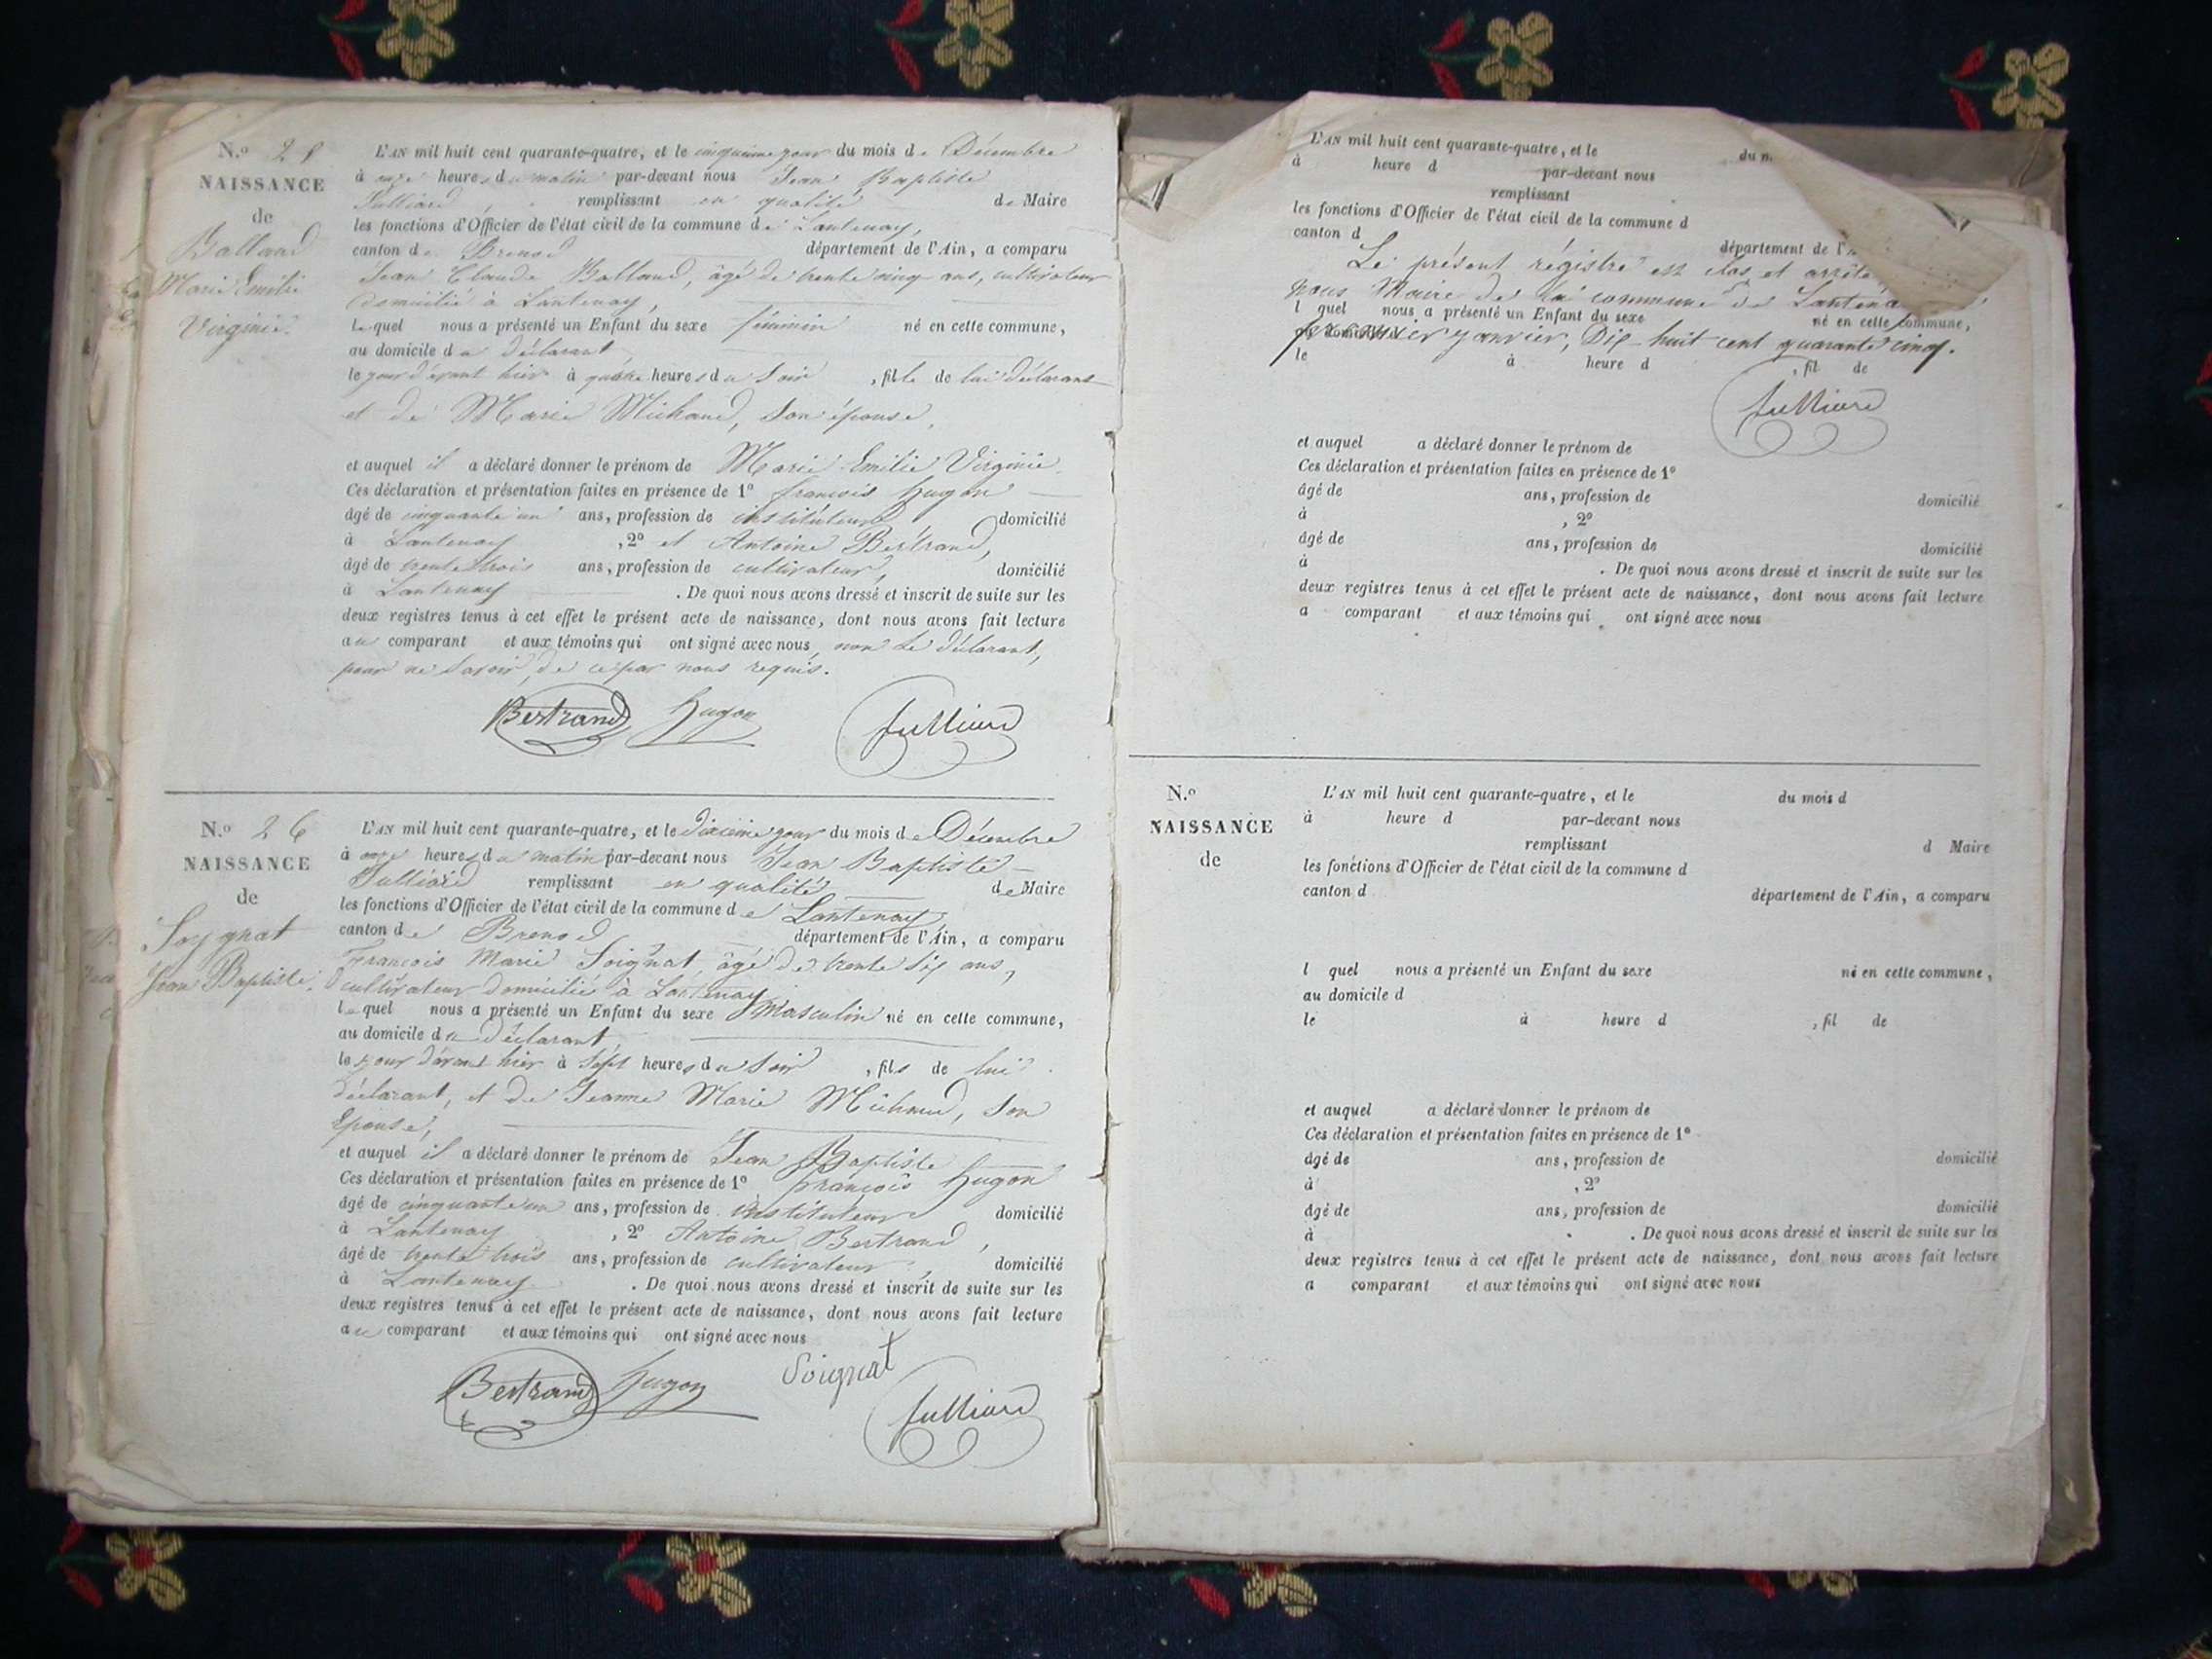 N.º 25
NAISSANCE
de
Balland
Marie Emilie
Virginie.
L'AN mil huit cent quarante-quatre, et le cinquième jour du mois de Décembre
à onze heures du matin par-devant nous Jean Baptiste
Julliard, remplissant en qualité de Maire
les fonctions d'Officier de l'état civil de la commune de Lantenay,
canton de Brenod département de l'Ain, a comparu
Jean Claude Balland, âgé de trente cinq ans, cultivateur
domicilié à Lantenay,
lequel nous a présenté un Enfant du sexe féminin né en cette commune,
au domicile du déclarant,
le jour d'avant hier à quatre heures du soir, fille de lui déclarant
et de Marie Michaud, son épouse,
et auquel il a déclaré donner le prénom de Marie Emilie Virginie
Ces déclaration et présentation faites en présence de 1º françois hugon
âgé de cinquante un ans, profession de instituteur domicilié
à Lantenay, 2º et Antoine Bertrand,
âgé de trente trois ans, profession de cultivateur, domicilié
à Lantenay. De quoi nous avons dressé et inscrit de suite sur les
deux registres tenus à cet effet le présent acte de naissance, dont nous avons fait lecture
au comparant et aux témoins qui ont signé avec nous, non le déclarant,
pour ne savoir, de ce par nous requis.
Bertrand hugon Julliard
N.º 26
NAISSANCE
de
Soygnat
Jean Baptiste.
L'AN mil huit cent quarante-quatre, et le dixième jour du mois de Décembre
à onze heures du matin par-devant nous Jean Baptiste
Julliard remplissant en qualité de Maire
les fonctions d'Officier de l'état civil de la commune de Lantenay,
canton de Brenod département de l'Ain, a comparu
François Marie Soignat, âgé de trente six ans,
cultivateur domicilié à Lantenay
lequel nous a présenté un Enfant du sexe Masculin né en cette commune,
au domicile du déclarant,
le jour d'avant hier à sept heures du soir, fils de lui
déclarant, et de Jeanne Marie Michaud, son
épouse,
et auquel il a déclaré donner le prénom de Jean Baptiste
Ces déclaration et présentation faites en présence de 1º françois hugon
âgé de cinquante un ans, profession de instituteur domicilié
à Lantenay, 2º Antoine Bertrand,
âgé de trente trois ans, profession de cultivateur, domicilié
à Lantenay. De quoi nous avons dressé et inscrit de suite sur les
deux registres tenus à cet effet le présent acte de naissance, dont nous avons fait lecture
au comparant et aux témoins qui ont signé avec nous
Bertrand hugon Soignat Julliard
L'AN mil huit cent quarante-quatre, et le du m
à heure d par-devant nous
remplissant
les fonctions d'Officier de l'état civil de la commune d
canton d département de l'A
Le présent régistre est clos et arrêté
nous Maire de la commune de Lantena
l quel nous a présenté un Enfant du sexe né en cette commune,
au domicile d
premier janvier, Dix-huit cent quarante cinq.
le à heure d , fil de
Julliard
et auquel a déclaré donner le prénom de
Ces déclaration et présentation faites en présence de 1º
âgé de ans, profession de domicilié
à , 2º
âgé de ans, profession de domicilié
à . De quoi nous avons dressé et inscrit de suite sur les
deux registres tenus à cet effet le présent acte de naissance, dont nous avons fait lecture
a comparant et aux témoins qui ont signé avec nous
N.º
NAISSANCE
de
L'AN mil huit cent quarante-quatre, et le du mois d
à heure d par-devant nous
remplissant d Maire
les fonctions d'Officier de l'état civil de la commune d
canton d département de l'Ain, a comparu
l quel nous a présenté un Enfant du sexe né en cette commune,
au domicile d
le à heure d , fil de
et auquel a déclaré donner le prénom de
Ces déclaration et présentation faites en présence de 1º
âgé de ans, profession de domicilié
à , 2º
âgé de ans, profession de domicilié
à . De quoi nous avons dressé et inscrit de suite sur les
deux registres tenus à cet effet le présent acte de naissance, dont nous avons fait lecture
a comparant et aux témoins qui ont signé avec nous